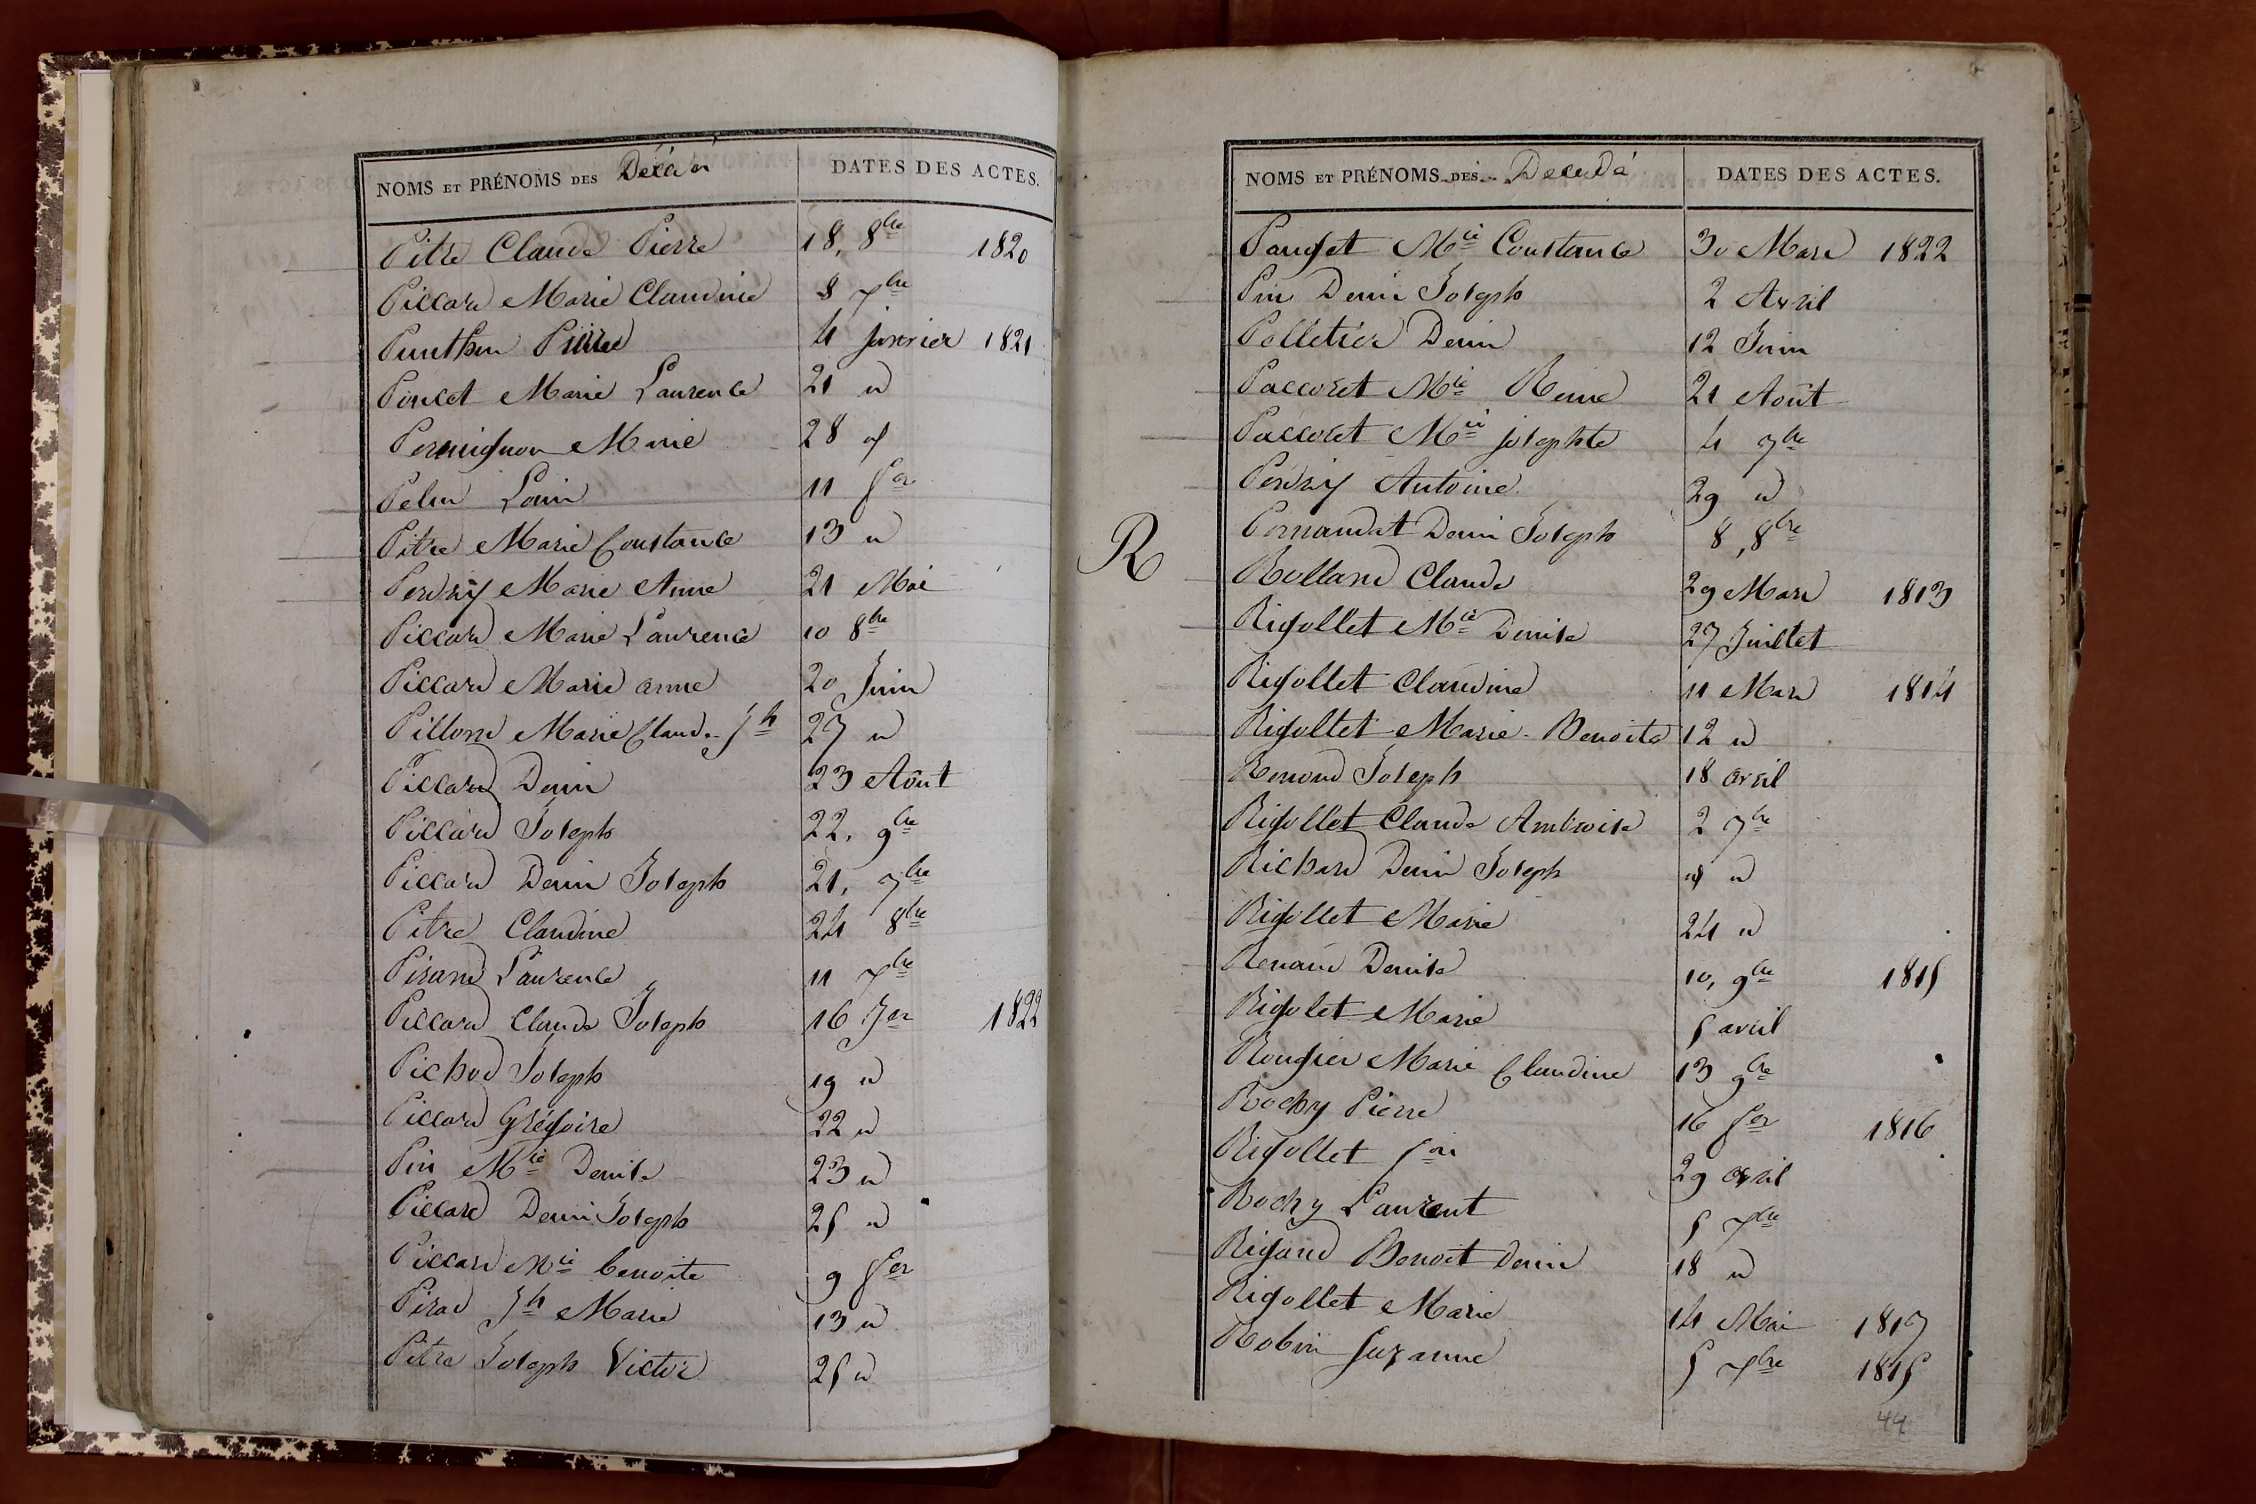 NOMS ET PRÉNOMS DES Décédés DATES DES ACTES.
Pitre Claude Pierre 18, 8bre 1820
Piccard Marie Claudine 8 7bre
Pierre 4 janvier 1821
Poncet Marie Laurence 21 d
Permignon Marie 28 d
Pelin Louis 11 fer
Pitre Marie Constance 13 d
Perdrix Marie Anne 21 Mai
Piccard Marie Laurence 10 8bre
Piccard Marie anne 20 Juin
Pillon Marie Claude Jh 27 d
Piccard Denis 23 Août
Piccard Joseph 22, 9bre
Piccard Denis Joseph 21, 7bre
Pitre Claudine 24 8bre
Pirard Laurence 11 7bre
Piccard Claude Joseph 16 Jer 1822
Pichod Joseph 19 d
Piccard Grégoire 22 d
Pin Mie Denise 23 d
Piccard Denis Joseph 25 d
Piccard Mie benoite 9 fer
Pirad Jh Marie 13 d
Pitre Joseph Victor 25 d
NOMS ET PRÉNOMS DES Décédés DATES DES ACTES.
Pauget Mie Constance 30 Mars 1822
Pin Denis Joseph 2 Avril
Pelletier Denis 12 Juin
Paccoret Mie Reine 21 Août
Paccoret Mie josephte 4 7bre
Perdrix Antoine 29 d
Pernaudat Denis Joseph 8, 8bre
R
Rolland Claude 29 Mars 1813
Rigollet Mie Denise 27 Juillet
Rigollet Claudine 11 Mars 1814
Rigollet Marie Benoite 12 d
Renoud Joseph 18 avril
Rigollet Claude Ambroise 2 7bre
Richard Denis Joseph d
Rigollet Marie 24 d
Renaud Denise 10, 9bre 1815
Rigolet Marie 5 avril
Rougier Marie Claudine 13 9bre
Rochy Pierre 16 fer 1816
Rigollet 29 avril
Rochy Laurent 5 7bre
Rigaud Benoit Denis 18 d
Rigollet Marie 14 Mai 1817
Robin Suzanne 5 7bre 1815
44